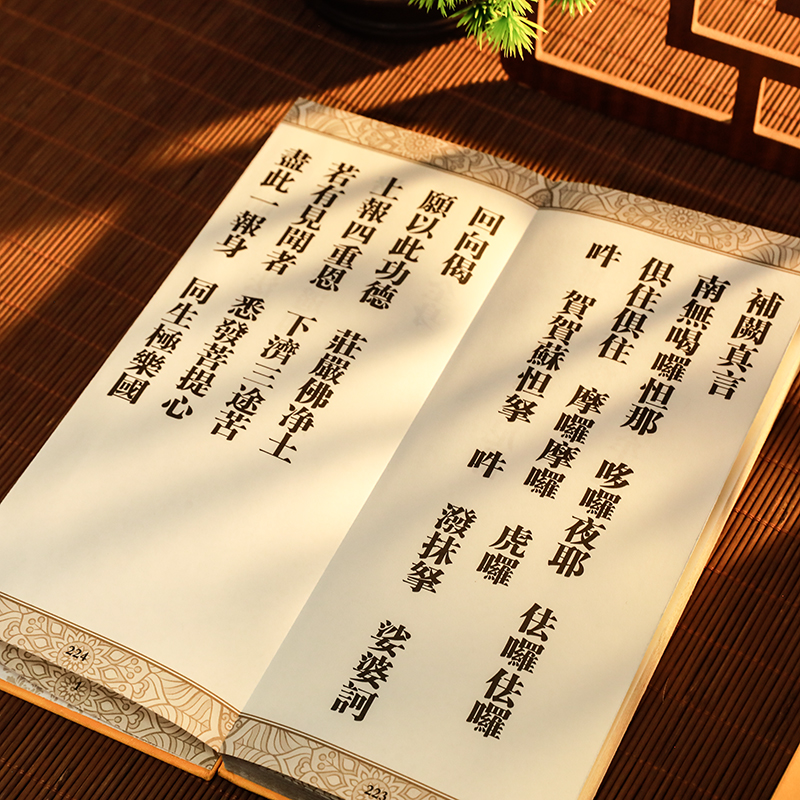 補闕真言
南無喝囉怛那 哆囉夜耶 佉囉佉囉
俱住俱住 摩囉摩囉 虎囉
吽 賀賀蘇怛拏 吽 潑抹拏 娑婆訶
223
回向偈
願以此功德 莊嚴佛净土
上報四重恩 下濟三途苦
若有見聞者 悉發菩提心
盡此一報身 同生極樂國
224